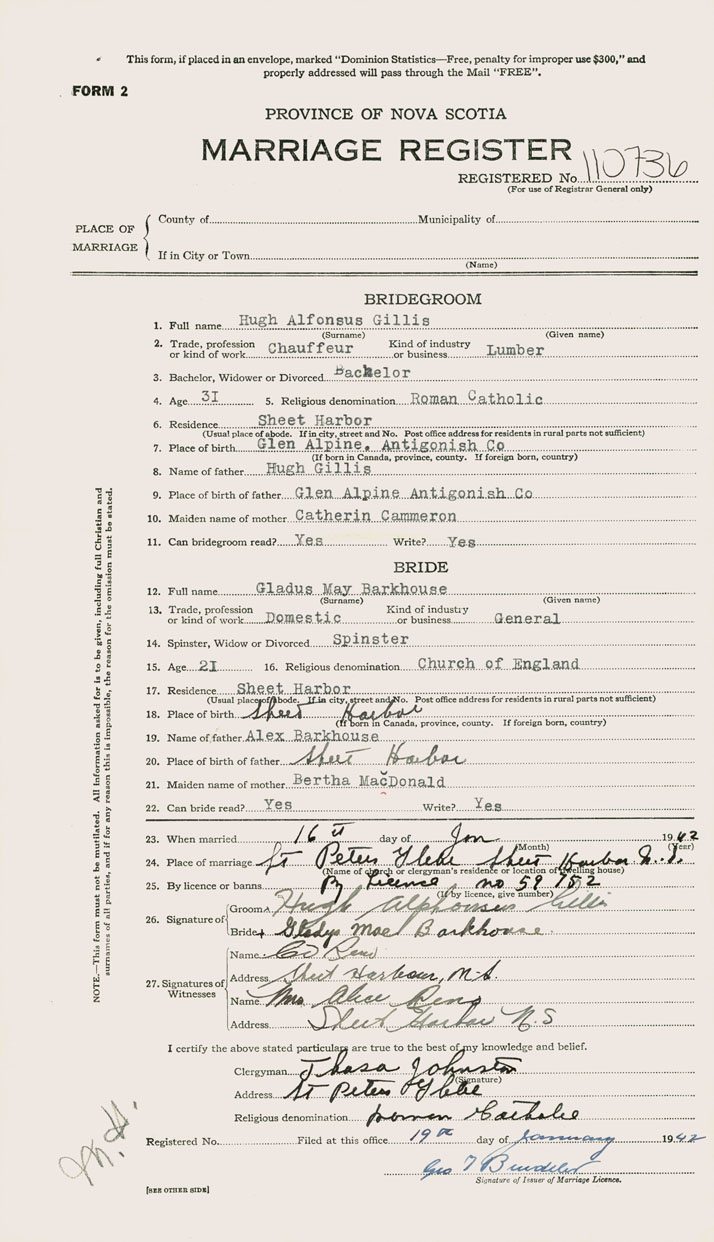 This form, if placed in an envelope, marked "Dominion Statistics—Free, penalty for improper use $300," and
properly addressed will pass through the Mail "FREE".
FORM 2
PROVINCE OF NOVA SCOTIA
MARRIAGE REGISTER
REGISTERED No. 110736
(For use of Registrar General only)
PLACE OF MARRIAGE
County of Municipality of
If in City or Town
(Name)
BRIDEGROOM
1. Full name Hugh Alfonsus Gillis
(Surname) (Given name)
2. Trade, profession or kind of work Chauffeur Kind of industry or business Lumber
3. Bachelor, Widower or Divorced Bachelor
4. Age 31 5. Religious denomination Roman Catholic
6. Residence Sheet Harbor
(Usual place of abode. If in city, street and No. Post office address for residents in rural parts not sufficient)
7. Place of birth Glen Alpine, Antigonish Co
(If born in Canada, province, county. If foreign born, country)
8. Name of father Hugh Gillis
9. Place of birth of father Glen Alpine Antigonish Co
10. Maiden name of mother Catherin Cammeron
11. Can bridegroom read? Yes Write? Yes
BRIDE
12. Full name Gladus May Barkhouse
(Surname) (Given name)
13. Trade, profession or kind of work Domestic Kind of industry or business General
14. Spinster, Widow or Divorced Spinster
15. Age 21 16. Religious denomination Church of England
17. Residence Sheet Harbor
(Usual place of abode. If in city, street and No. Post office address for residents in rural parts not sufficient)
18. Place of birth Sheet Harbor
(If born in Canada, province, county. If foreign born, country)
19. Name of father Alex Barkhouse
20. Place of birth of father Sheet Harbor
21. Maiden name of mother Bertha MacDonald
22. Can bride read? Yes Write? Yes
23. When married 16th day of Jan 1942
(Month) (Year)
24. Place of marriage St Peters Glebe Sheet Harbor N.S.
(Name of church or clergyman's residence or location of dwelling house)
25. By licence or banns By Licence no 59752
(If by licence, give number)
26. Signature of
Groom Hugh Alphonsus Gillis
Bride Gladys Mae Barkhouse
27. Signatures of Witnesses
Name
Address Sheet Harbour, N.S.
Name Mrs Alice
Address Sheet Harbor N.S
I certify the above stated particulars are true to the best of my knowledge and belief.
Clergyman Johnston
(Signature)
Address St Peters Glebe
Religious denomination Roman Catholic
Registered No. Filed at this office 19th day of January 1942
Geo T
Signature of Issuer of Marriage Licence.
[SEE OTHER SIDE]
NOTE.—This form must not be mutilated. All Information asked for is to be given, including full Christian and
surnames of all parties, and if for any reason this is impossible, the reason for the omission must be stated.